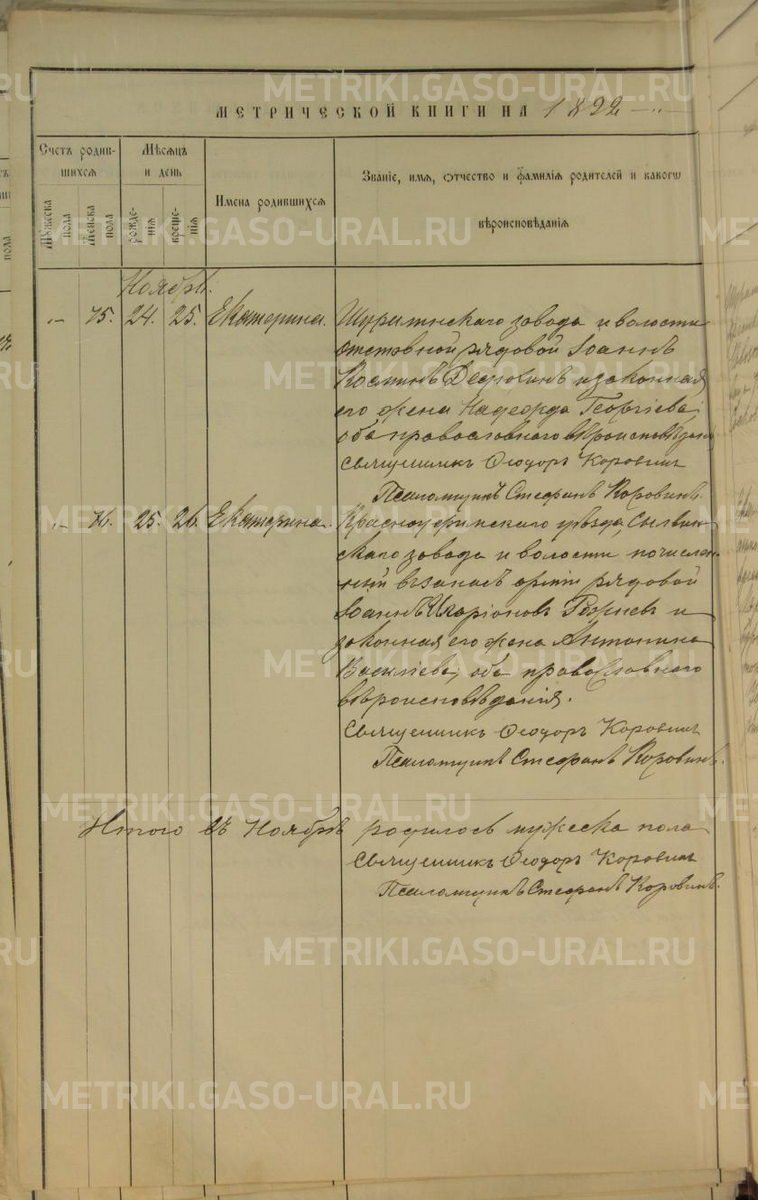 МЕТРИЧЕСКОЙ КНИГИ НА 1892
Счетъ родив-
шихся
Мѣсяцъ
и день
Имена родившихся
Званіе, имя, отчество и фамилія родителей и какого
вѣроисповѣданія
Мужеска
пола
Женска
пола
рожде-
нія
креще-
нія
Ноябрь.
75. 24. 25. Екатерина.
завода и волости
отставной рядовой Іоаннъ
Косминъ и законная
его жена Надежда Георгіева,
оба православнаго вѣроисповѣданія
Священникъ Ѳеодоръ Коровинъ
Псаломщикъ Стефанъ Коровинъ.
76. 25. 26. Екатерина.
Красноуфимскаго уѣзда, Сылвин-
скаго завода и волости, почислен-
ный въ запасъ арміи рядовой
Іоаннъ и
законная его жена Антонина
Василіева, оба православнаго
вѣроисповѣданія.
Священникъ Ѳеодоръ Коровинъ
Псаломщикъ Стефанъ Коровинъ.
Итого въ Ноябрѣ родилось мужеска пола
Священникъ Ѳеодоръ Коровинъ
Псаломщикъ Стефанъ Коровинъ.
METRIKI.GASO-URAL.RU